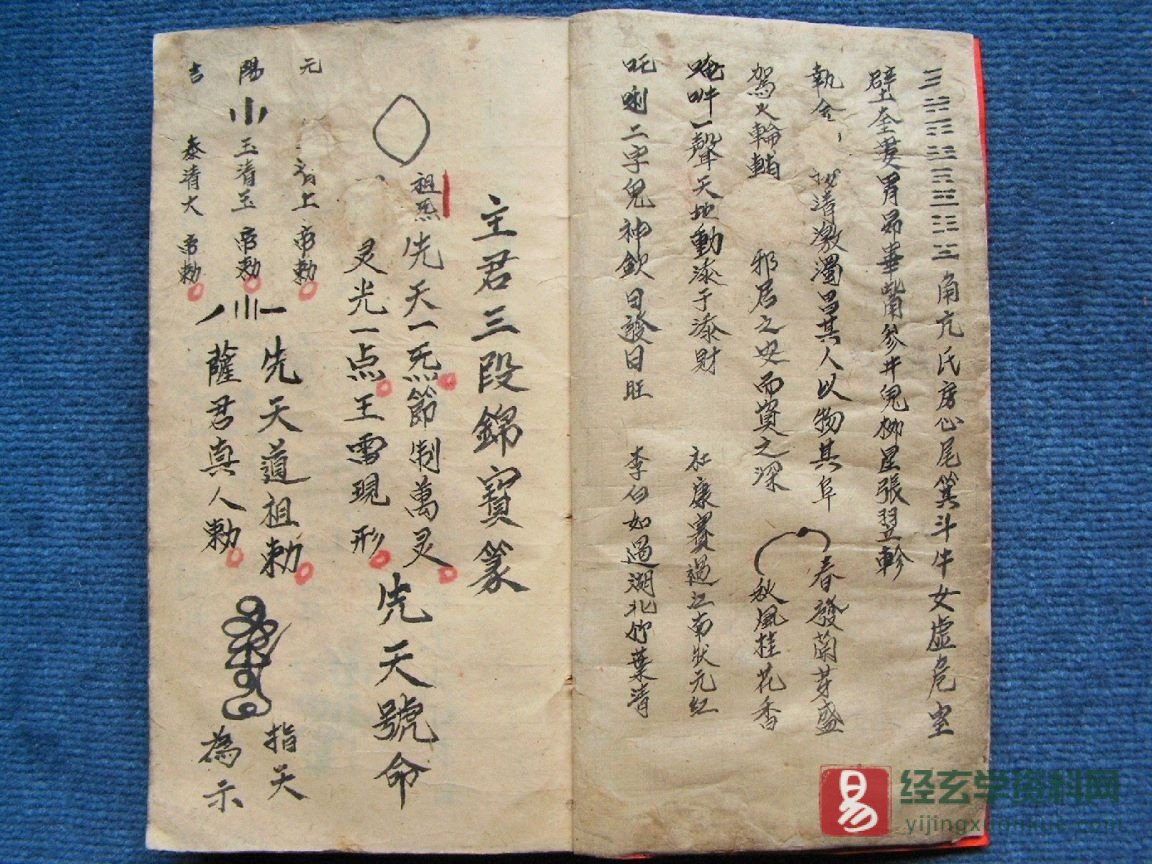 ☰☵☶☳☴☲☷☱角亢氏房心尾箕斗牛女虚危室
壁奎婁胃昴畢觜參井鬼柳星張翌軫
執金
清激濁
其人以物其阜
春發蘭芽盛
駕火輪
邪居之
而資之深
秋風桂花香
唵吽一聲天地動添子添財
杜康賽過江南狀元紅
吒唎二字鬼神欽日發日旺
李白如過湖北竹葉清
主君三段錦寶篆
祖炁
先天一炁節制萬灵
先天號命
灵光一点王
現形
元
上帝勅
先天道祖勅
指天
陽
玉清玉帝勅
薩君真人勅
為示
吉
泰清大帝勅
易
经玄学资料网
yijingxuanxue.com